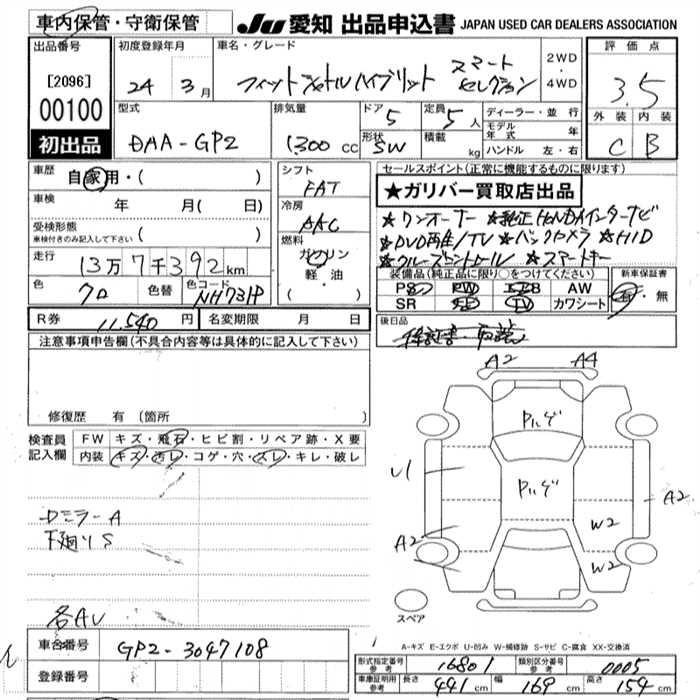 車内保管・守衛保管
JU 愛知 出品申込書 JAPAN USED CAR DEALERS ASSOCIATION
出品番号
[2096]
00100
初出品
初度登録年月
24 年 3 月
車名・グレード
フィットシャトルハイブリット スマートセレクション
2WD・4WD
評価点
3.5
外装 内装
C B
型式
DAA-GP2
排気量
1300 cc
ドア 5
形状 SW
定員 5 人
積載 kg
ディーラー・並行
モデル年式 年
ハンドル 左・右
車歴 自家用・( )
車検 年 月( 日)
受検形態
車検付きのみ記入して下さい ( )
走行 13万7千392km
色 クロ 色替 色コード NH731P
シフト
FAT
冷房
AAC
燃料
ガソリン
軽・油
( )
セールスポイント(正常に機能するものに限ります)
★ガリバー買取店出品
★ワンオーナー ★純正HONDAインターナビ
★DVD再生/TV ★バックカメラ ★HID
★クルーズコントロール ★スマートキー
装備品(純正品に限り○をつけてください)
PS PW エアB AW
SR ナビ TV カワシート
新車保証書
有・無
R券 11,540 円 名変期限 月 日
後日品
保証書・取説
注意事項申告欄(不具合内容等は具体的に記入して下さい)
修復歴 有 (箇所 )
検査員記入欄
FW キズ・飛石・ヒビ割・リペア跡・X要
内装 キズ・汚レ・コゲ・穴・スレ・キレ・破レ
Dミラー A
下廻りS
各AU
A2 A4
Pハゲ
Pハゲ
U1
A2
A2
W2
W2
スペア
A-キズ E-エクボ U-凹み W-補修跡 S-サビ C-腐食 XX-交換済
車台番号 GP2-3047108
登録番号
形式指定番号 参考 16801 類別区分番号 参考 0005
車庫証明用 参考 長さ 441 cm 幅 169 cm 高さ 154 cm